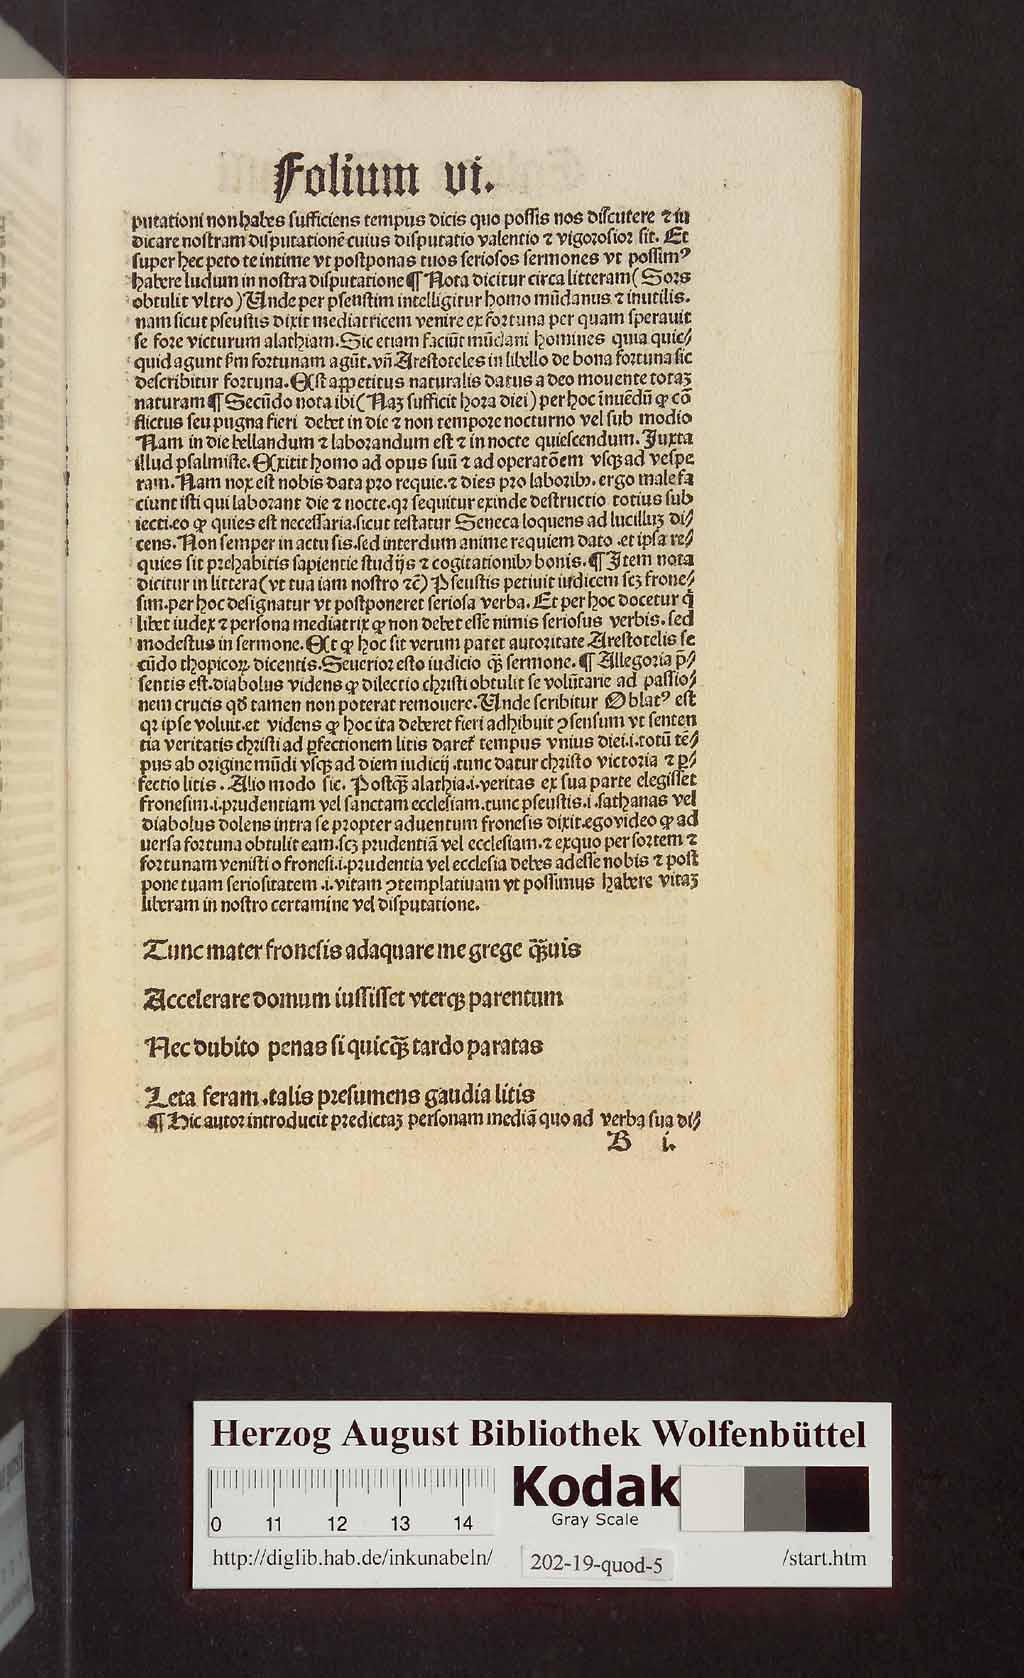 Folium vi.
putationi non habes sufficiens tempus dicis quo possis nos discutere ⁊ iu
dicare nostram disputationē cuius disputatio valentio ⁊ vigorosior sit. Et
super hec peto te intime vt postponas tuos seriosos sermones vt possimꝰ
habere ludum in nostra disputatione ¶ Nota dicitur circa litteram (Sors
obtulit vltro) Unde per pseustim intelligitur homo mūdanus ⁊ inutilis.
nam sicut pseustis dixit mediatricem venire ex fortuna per quam sperauit
se fore victurum alathiam. Sic etiam faciūt mūdani homines quia quic⸗
quid agunt ẜm fortunam agūt. vñ Arestoteles in libello de bona fortuna sic
describitur fortuna. Est appetitus naturalis datus a deo mouente totaꝫ
naturam ¶ Secūdo nota ibi (Naꝫ sufficit hora diei) per hoc īnuēdū ꝙ cō
flictus seu pugna fieri debet in die ⁊ non tempore nocturno vel sub modio
Nam in die bellandum ⁊ laborandum est ⁊ in nocte quiescendum. Juxta
illud psalmiste. Exitit homo ad opus suū ⁊ ad operatōem vsqꝫ ad vespe
ram. Nam nox est nobis data pro requie. ⁊ dies pro laboribꝫ. ergo male fa
ciunt isti qui laborant die ⁊ nocte. qꝛ sequitur exinde destructio totius sub
iecti. eo ꝙ quies est necessaria. sicut testatur Seneca loquens ad lucilluꝫ di⸗
cens. Non semper in actu sis. sed interdum anime requiem dato .et ipsa re⸗
quies sit prehabitis sapientie studijs ⁊ cogitationibꝫ bonis. ¶ Item nota
dicitur in littera (vt tua iam nostro ⁊ē) Pseustis petiuit iudicem scꝫ frone⸗
sim. per hoc designatur vt postponeret seriosa verba. Et per hoc docetur q̄
libet iudex ⁊ persona mediatrix ꝙ non debet esse nimis seriosus verbis. sed
modestus in sermone. Et ꝙ hoc sit verum patet autoritate Arestotelis se
cūdo thopicoꝝ. dicentis. Seuerior esto iudicio qꝫ̄ sermone. ¶ Allegoria p̄⸗
sentis est. diabolus videns ꝙ dilectio christi obtulit se volūtarie ad passio⸗
nem crucis qd̄ tamen non poterat remouere. Unde scribitur Oblatꝰ est
qꝛ ipse voluit. et videns ꝙ hoc ita deberet fieri adhibuit ꝯsensum vt senten
tia veritatis christi ad ꝑfectionem litis daret̄ tempus vnius diei .i. totū tē⸗
pus ab origine mūdi vsqꝫ ad diem iudicij .tunc datur christo victoria ⁊ ꝑ⸗
fectio litis . Alio modo sic. Postqꝫ̄ alathia .i. veritas ex sua parte elegisset
fronesim .i. prudentiam vel sanctam ecclesiam .tunc pseustis .i .sathanas vel
diabolus dolens intra se propter aduentum fronesis dixit. ego video ꝙ ad
uersa fortuna obtulit eam. scꝫ prudentiā vel ecclesiam. ⁊ exquo per sortem ⁊
fortunam venisti o fronesi .i. prudentia vel ecclesia debes adesse nobis ⁊ post
pone tuam seriositatem .i. vitam ꝯtemplatiuam vt possimus habere vitaꝫ
liberam in nostro certamine vel disputatione.
Tunc mater fronesis adaquare me grege qꝫ̄uis
Accelerare domum iussisset vterqꝫ parentum
Nec dubito penas si quicqꝫ̄ tardo paratas
Leta feram .talis presumens gaudia litis
¶ Hic autor introducit predictaꝫ personam mediā quo ad verba sua di⸗
B i.
Herzog August Bibliothek Wolfenbüttel
0 11 12 13 14
Kodak
Gray Scale
http://diglib.hab.de/inkunabeln/ 202-19-quod-5 /start.htm